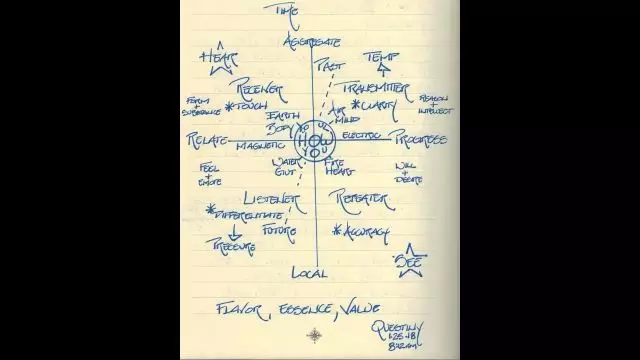 TIME
AGGREGATE
HEAR
TEMP
PAST
RECEIVER
TRANSMITTER
FORM
+
SUBSTANCE
*TOUCH
*CLARITY
REASON
+
INTELLECT
EARTH
BODY
AIR
MIND
HOW
YOU
RELATE
MAGNETIC
ELECTRIC
PROGRESS
WATER
GUT
FIRE
HEART
FEEL
+
EMOTE
WILL
+
DESIRE
LISTENER
REPEATER
*DIFFERENTIATE
FUTURE
*ACCURACY
PRESSURE
SEE
LOCAL
FLAVOR, ESSENCE, VALUE
1·25·18